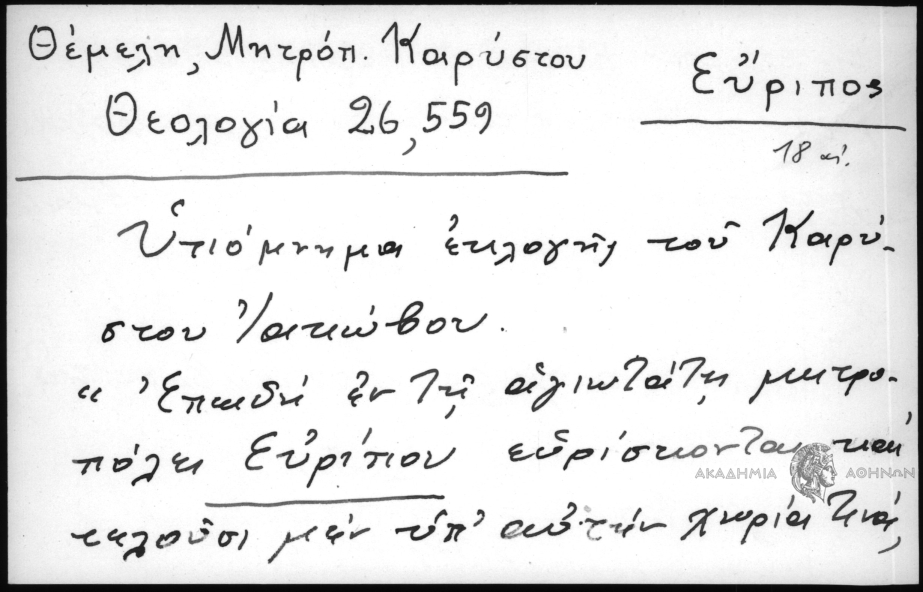 Θέμελη, Μητρόπ. Καρύστου
Θεολογία 26,559
Εὔριπος
18 αἰ.
Ὑπόμνημα ἐκλογῆς τοῦ Καρύ-
στου Ἰακώβου.
“ Ἐπειδὴ ἐν τῇ ἁγιωτάτῃ μητρο-
πόλει Εὐρίπου εὑρίσκονται καὶ
τελοῦσι μὲν ὑπ' αὐτὴν χωρία τινά,
ΑΚΑΔΗΜΙΑ ΑΘΗΝΩΝ